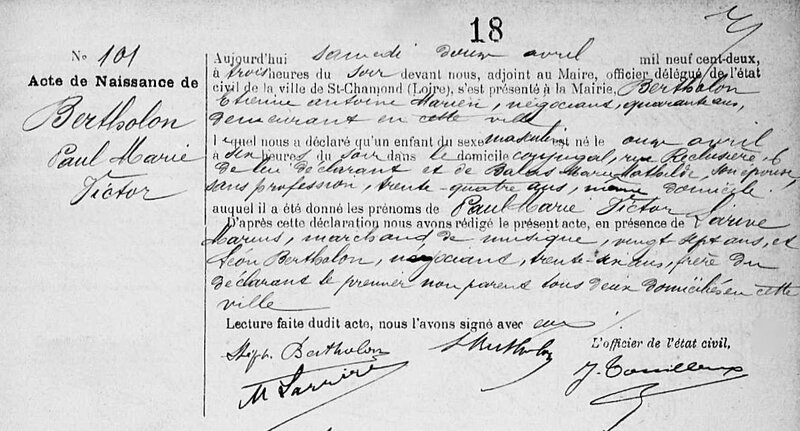 18
N° 101
Acte de Naissance de
Bertholon
Paul Marie
Victor
Aujourd'hui samedi douze avril mil neuf cent-deux,
à trois heures du soir devant nous, adjoint au Maire, officier délégué de l'état
civil de la ville de St-Chamond (Loire), s'est présenté à la Mairie, Bertholon
Etienne antoine Marien, négociant, quarante ans,
demeurant en cette ville
lequel nous a déclaré qu'un enfant du sexe masculin est né le onze avril
à six heures du soir dans le domicile conjugal, rue Reclusière 6
de lui déclarant et de Marie Mathilde, son épouse,
sans profession, trente-quatre ans, même domicile.
auquel il a été donné les prénoms de Paul Marie Victor
D'après cette déclaration nous avons rédigé le présent acte, en présence de
Marius, marchand de musique, vingt sept ans, et
Léon Bertholon, négociant, trente six ans, frère du
déclarant le premier non parent tous deux domiciliés en cette
ville
Lecture faite dudit acte, nous l'avons signé avec eux
Bertholon
L. Bertholon
L'officier de l'état civil,
M